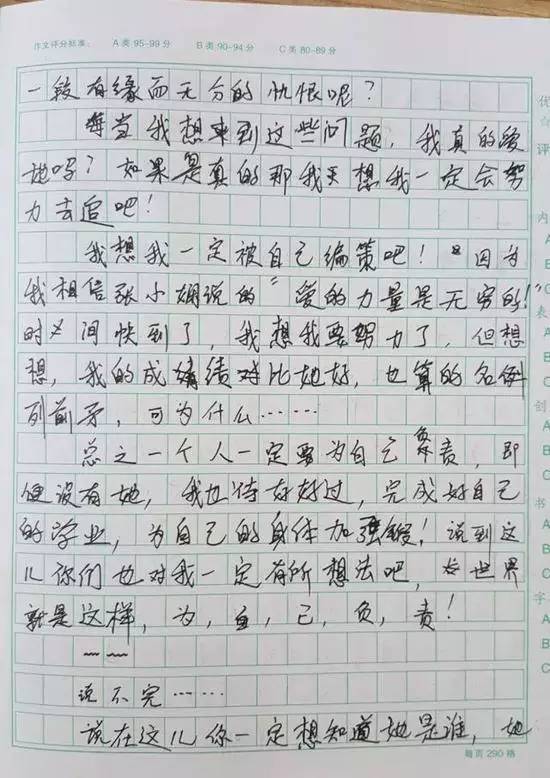 作文评分标准： A类95-99分 B类90-94分 C类80-89分
一段有缘而无分的忧恨呢？
每当我想来到这些问题，我真的爱
她吗？如果是真的那我天想我一定会努
力去追吧！
我想我一定被自己编策吧！因为
我相信张小娴说的“爱的力量是无穷的！”
时间快到了，我想我要努力了，但想
想，我的成绩对比她好，也算的名例
列前矛，可为什么……
总之一个人一定要为自己负责，即
使没有她，我也待好好过，完成好自己
的学业，为自己的身体加强锻！说到这
儿你们也对我一定有所想法吧，世界
就是这样，为，自，己，负，责！
~~ ~~
说不完……
说在这儿你一定想知道她是谁，她
每页290格
优
评
内
A
B
C
表
A
B
C
创
A
B
C
书
A
B
字
A
B